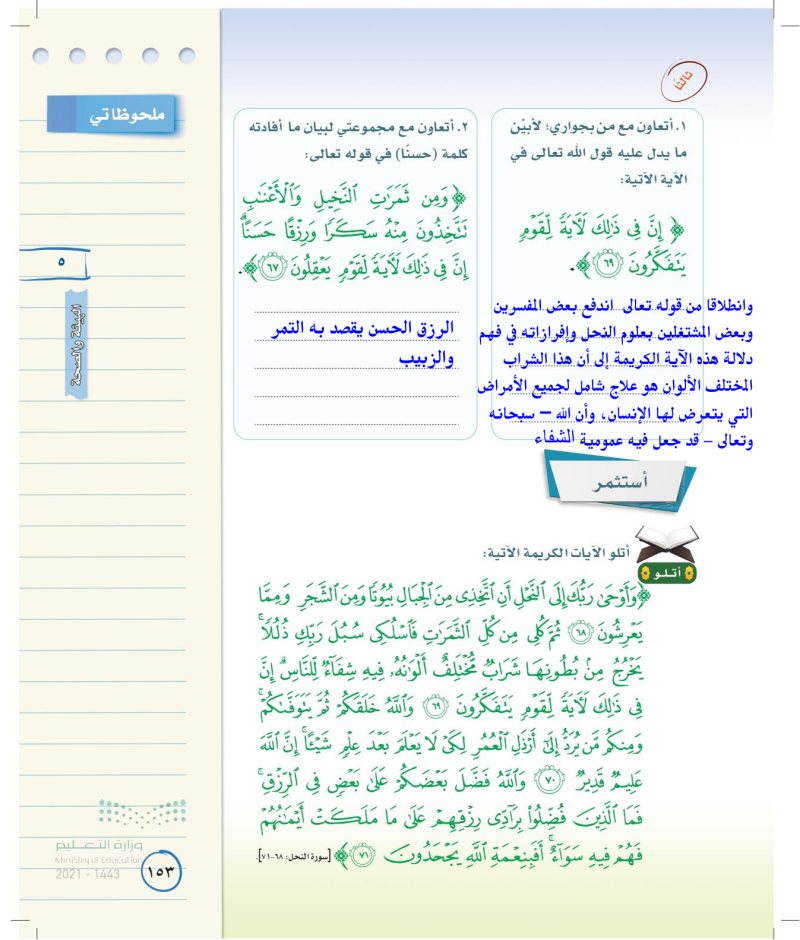 ثالثًا
١. أتعاون مع من بجواري؛ لأبيّن
ما يدل عليه قول الله تعالى في
الآية الآتية:
﴿ إِنَّ فِي ذَٰلِكَ لَآيَةً لِّقَوْمٍ
يَتَفَكَّرُونَ ٦٩ ﴾.
وانطلاقا من قوله تعالى اندفع بعض المفسرين
وبعض المشتغلين بعلوم النحل وإفرازاته في فهم
دلالة هذه الآية الكريمة إلى أن هذا الشراب
المختلف الألوان هو علاج شامل لجميع الأمراض
التي يتعرض لها الإنسان، وأن الله – سبحانه
وتعالى – قد جعل فيه عمومية الشفاء
٢. أتعاون مع مجموعتي لبيان ما أفادته
كلمة (حسنًا) في قوله تعالى:
﴿ وَمِن ثَمَرَٰتِ ٱلنَّخِيلِ وَٱلْأَعْنَٰبِ
تَتَّخِذُونَ مِنْهُ سَكَرًا وَرِزْقًا حَسَنًا ۗ
إِنَّ فِي ذَٰلِكَ لَآيَةً لِّقَوْمٍ يَعْقِلُونَ ٦٧ ﴾.
الرزق الحسن يقصد به التمر
والزبيب
أستثمر
أتلو
أتلو الآيات الكريمة الآتية:
﴿ وَأَوْحَىٰ رَبُّكَ إِلَى ٱلنَّحْلِ أَنِ ٱتَّخِذِي مِنَ ٱلْجِبَالِ بُيُوتًا وَمِنَ ٱلشَّجَرِ وَمِمَّا
يَعْرِشُونَ ٦٨ ثُمَّ كُلِي مِن كُلِّ ٱلثَّمَرَٰتِ فَٱسْلُكِي سُبُلَ رَبِّكِ ذُلُلًا ۚ
يَخْرُجُ مِنۢ بُطُونِهَا شَرَابٌ مُّخْتَلِفٌ أَلْوَٰنُهُۥ فِيهِ شِفَآءٌ لِّلنَّاسِ ۗ إِنَّ
فِي ذَٰلِكَ لَآيَةً لِّقَوْمٍ يَتَفَكَّرُونَ ٦٩ وَٱللَّهُ خَلَقَكُمْ ثُمَّ يَتَوَفَّىٰكُمْ ۚ
وَمِنكُم مَّن يُرَدُّ إِلَىٰٓ أَرْذَلِ ٱلْعُمُرِ لِكَيْ لَا يَعْلَمَ بَعْدَ عِلْمٍ شَيْـًٔا ۚ إِنَّ ٱللَّهَ
عَلِيمٌ قَدِيرٌ ٧٠ وَٱللَّهُ فَضَّلَ بَعْضَكُمْ عَلَىٰ بَعْضٍ فِي ٱلرِّزْقِ ۚ
فَمَا ٱلَّذِينَ فُضِّلُوا۟ بِرَآدِّي رِزْقِهِمْ عَلَىٰ مَا مَلَكَتْ أَيْمَٰنُهُمْ
فَهُمْ فِيهِ سَوَآءٌ ۚ أَفَبِنِعْمَةِ ٱللَّهِ يَجْحَدُونَ ٧١ ﴾ [سورة النحل: ٦٨-٧١].
ملحوظاتي
٥
البيئة والصحة
وزارة التعليم
Ministry of Education
2021 - 1443
١٥٣